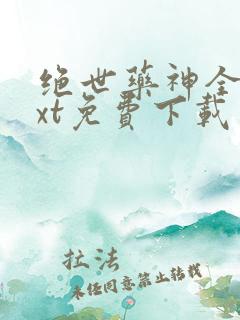 绝世藥神全
xt免費下載
拉法
未经同意禁止转载